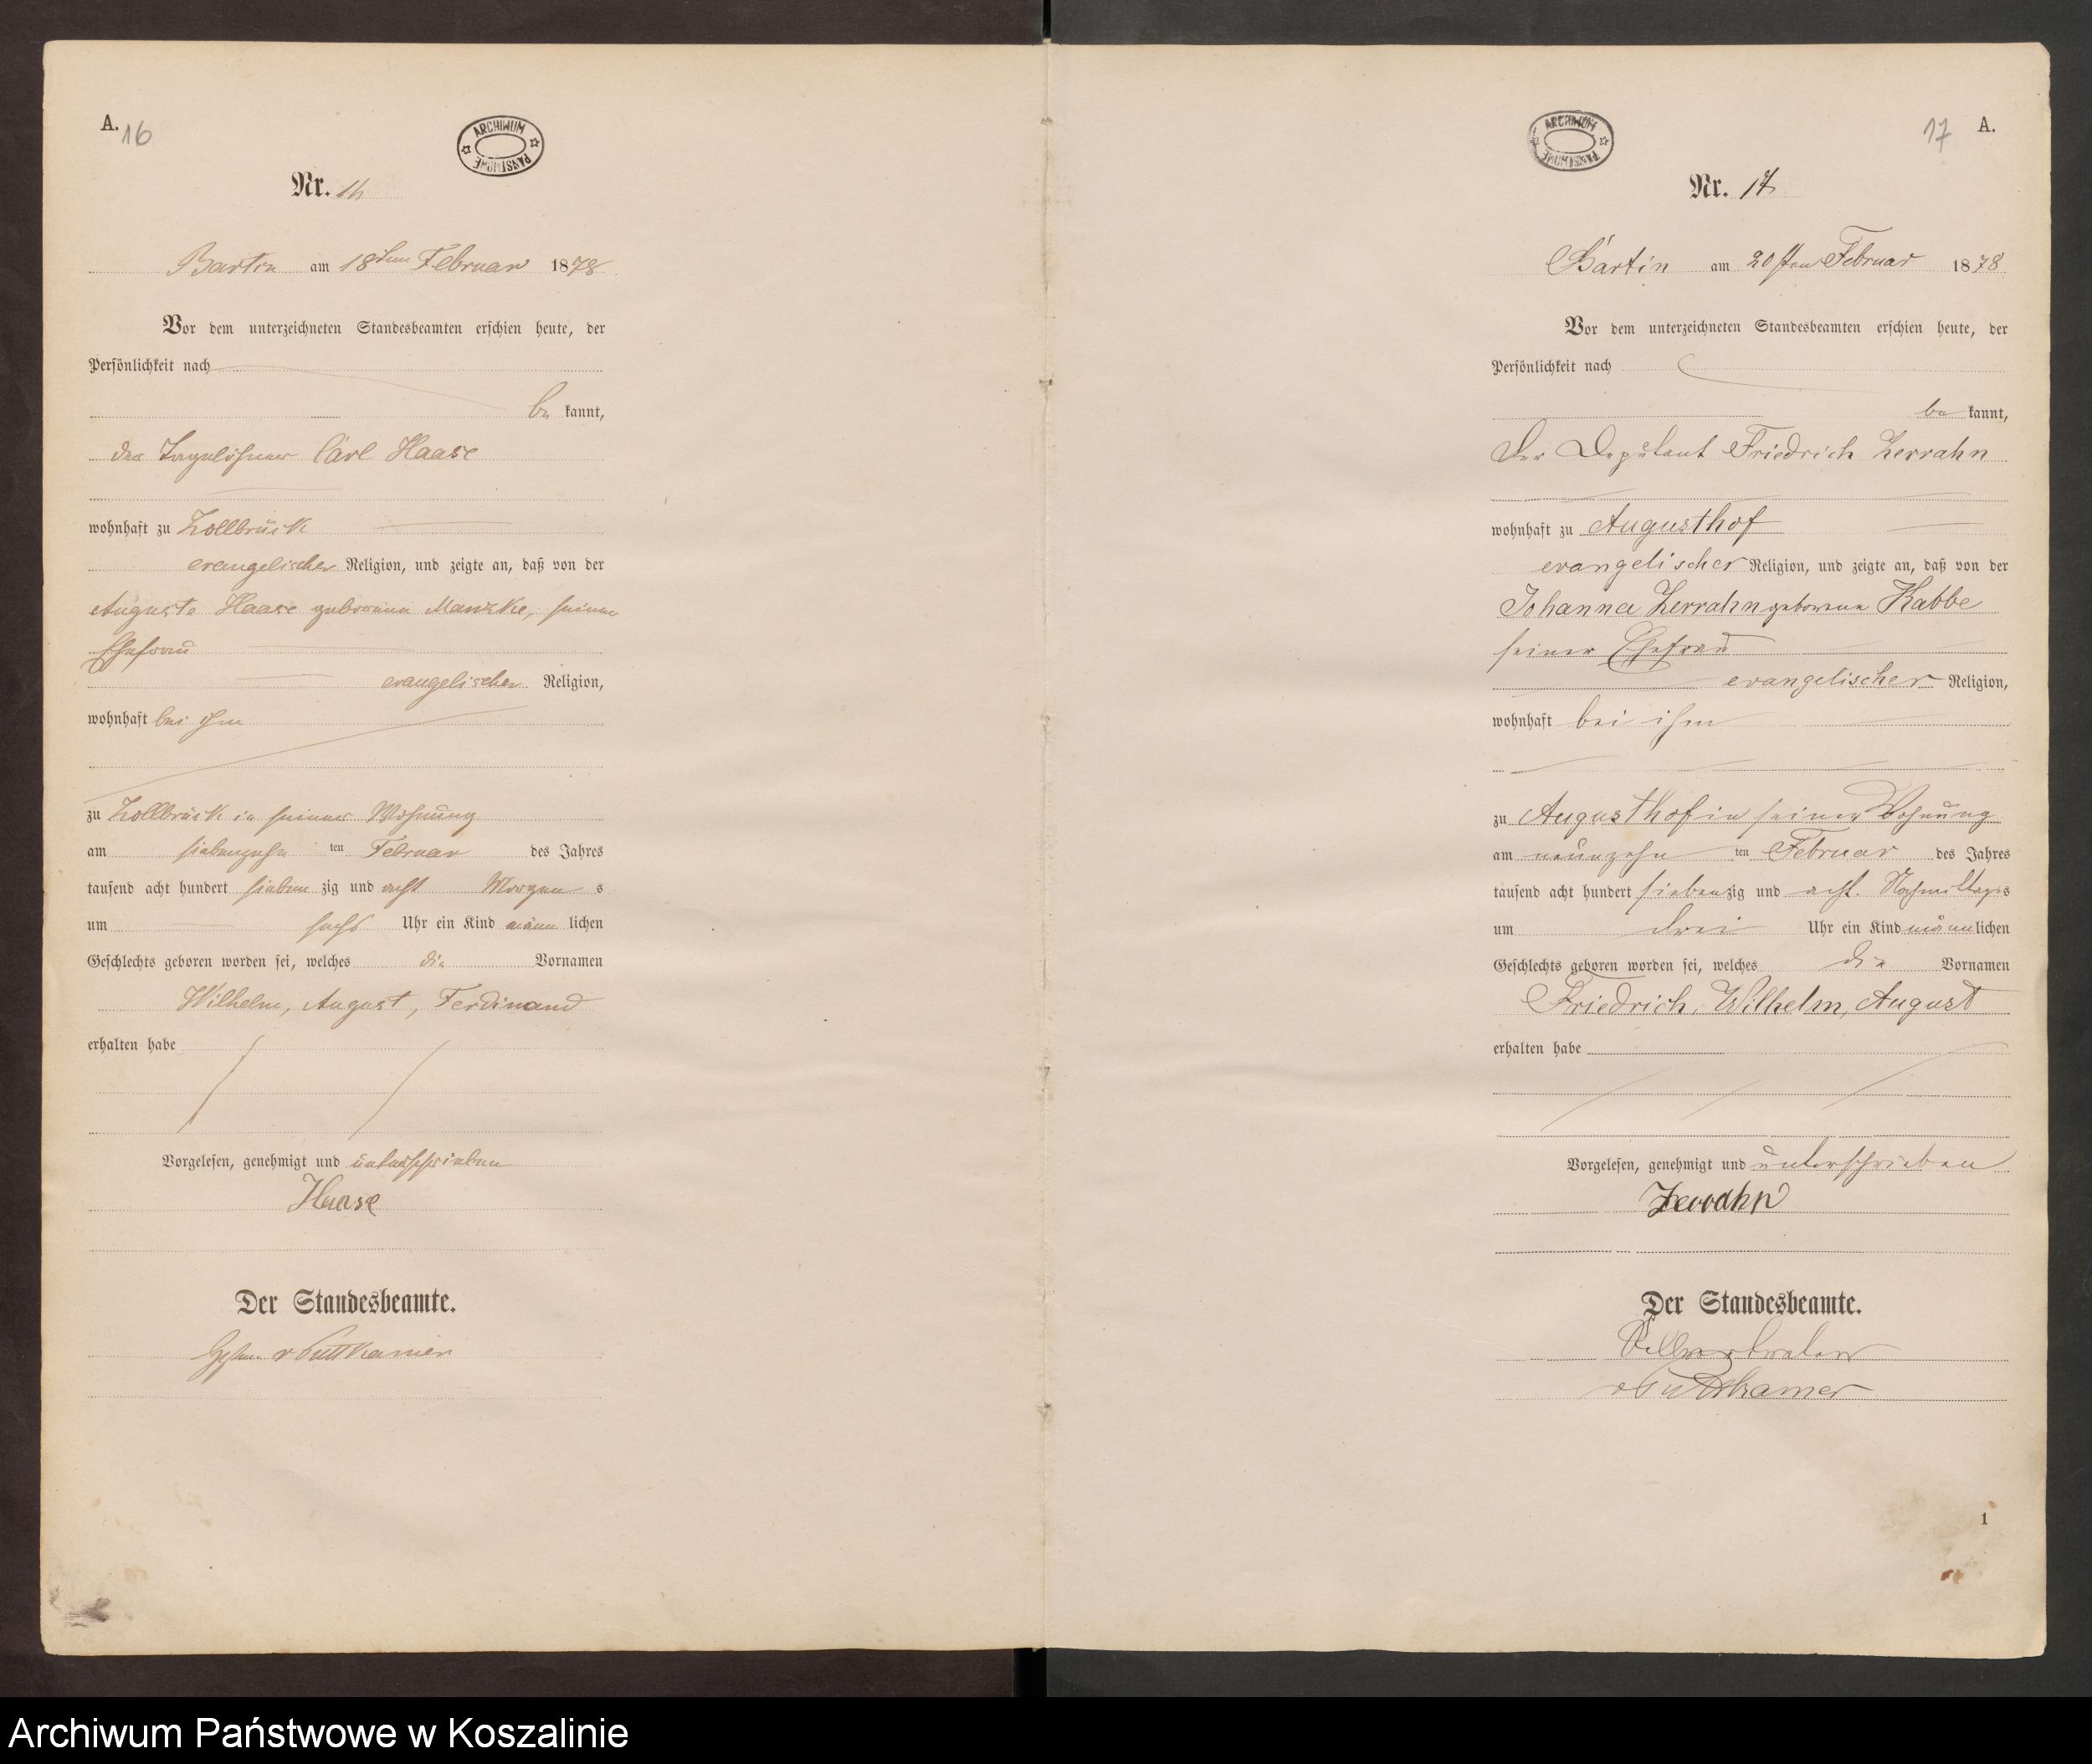 A. 16
ARCHIWUM PAŃSTWOWE
Nr. 16
Bartin am 18ten Februar 1878
Vor dem unterzeichneten Standesbeamten erschien heute, der
Persönlichkeit nach
be kannt,
der Tagelöhner Carl Haase
wohnhaft zu Zollbrück
evangelischer Religion, und zeigte an, daß von der
Auguste Haase geborene Manzke, seiner
Ehefrau
evangelischer Religion,
wohnhaft bei ihm
zu Zollbrück in seiner Wohnung
am siebenzehn ten Februar des Jahres
tausend acht hundert sieben zig und acht Morgen s
um sechs Uhr ein Kind männ lichen
Geschlechts geboren worden sei, welches die Vornamen
Wilhelm, August, Ferdinand
erhalten habe
Vorgelesen, genehmigt und unterschrieben
Haase
Der Standesbeamte.
v Puttkamer
17 A.
ARCHIWUM PAŃSTWOWE
Nr. 17
Bartin am 20sten Februar 1878
Vor dem unterzeichneten Standesbeamten erschien heute, der
Persönlichkeit nach
be kannt,
Der Deputant Friedrich Zerrahn
wohnhaft zu Augusthof
evangelischer Religion, und zeigte an, daß von der
Johanna Zerrahn geborene Kabbe
seiner Ehefrau
evangelischer Religion,
wohnhaft bei ihm
zu Augusthof in seiner Wohnung
am neunzehn ten Februar des Jahres
tausend acht hundert siebenzig und acht. Nachmittags
um drei Uhr ein Kind männlichen
Geschlechts geboren worden sei, welches die Vornamen
Friedrich, Wilhelm, August
erhalten habe
Vorgelesen, genehmigt und unterschrieben
Zerrahn
Der Standesbeamte.
v Puttkamer
1
Archiwum Państwowe w Koszalinie